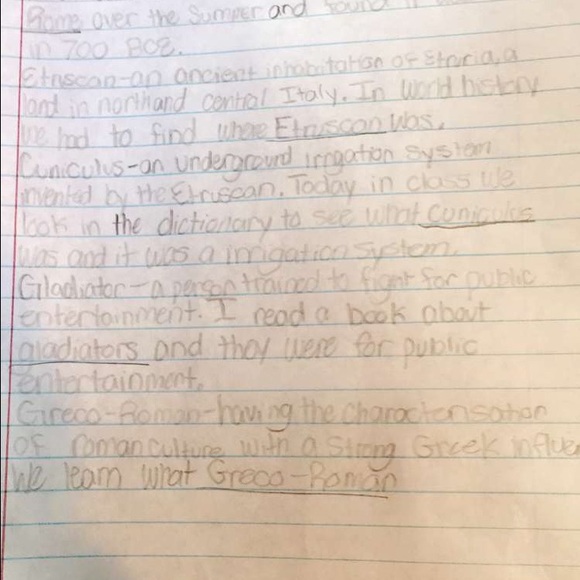 Rome over the Sumper and found it
in 700 BCE.
Etruscan-an ancient inhabitation of Etruria, a
land in north and central Italy. In World history
we had to find where Etruscan was.
Cuniculus-an underground irrigation system
invented by the Etruscan. Today in class we
look in the dictionary to see what cuniculus
was and it was a irrigation system.
Gladiator-a person trained to fight for public
entertainment. I read a book about
gladiators and they were for public
entertainment.
Greco-Roman-having the characterisation
of roman culture with a strong Greek influe
We learn what Greco-Roman